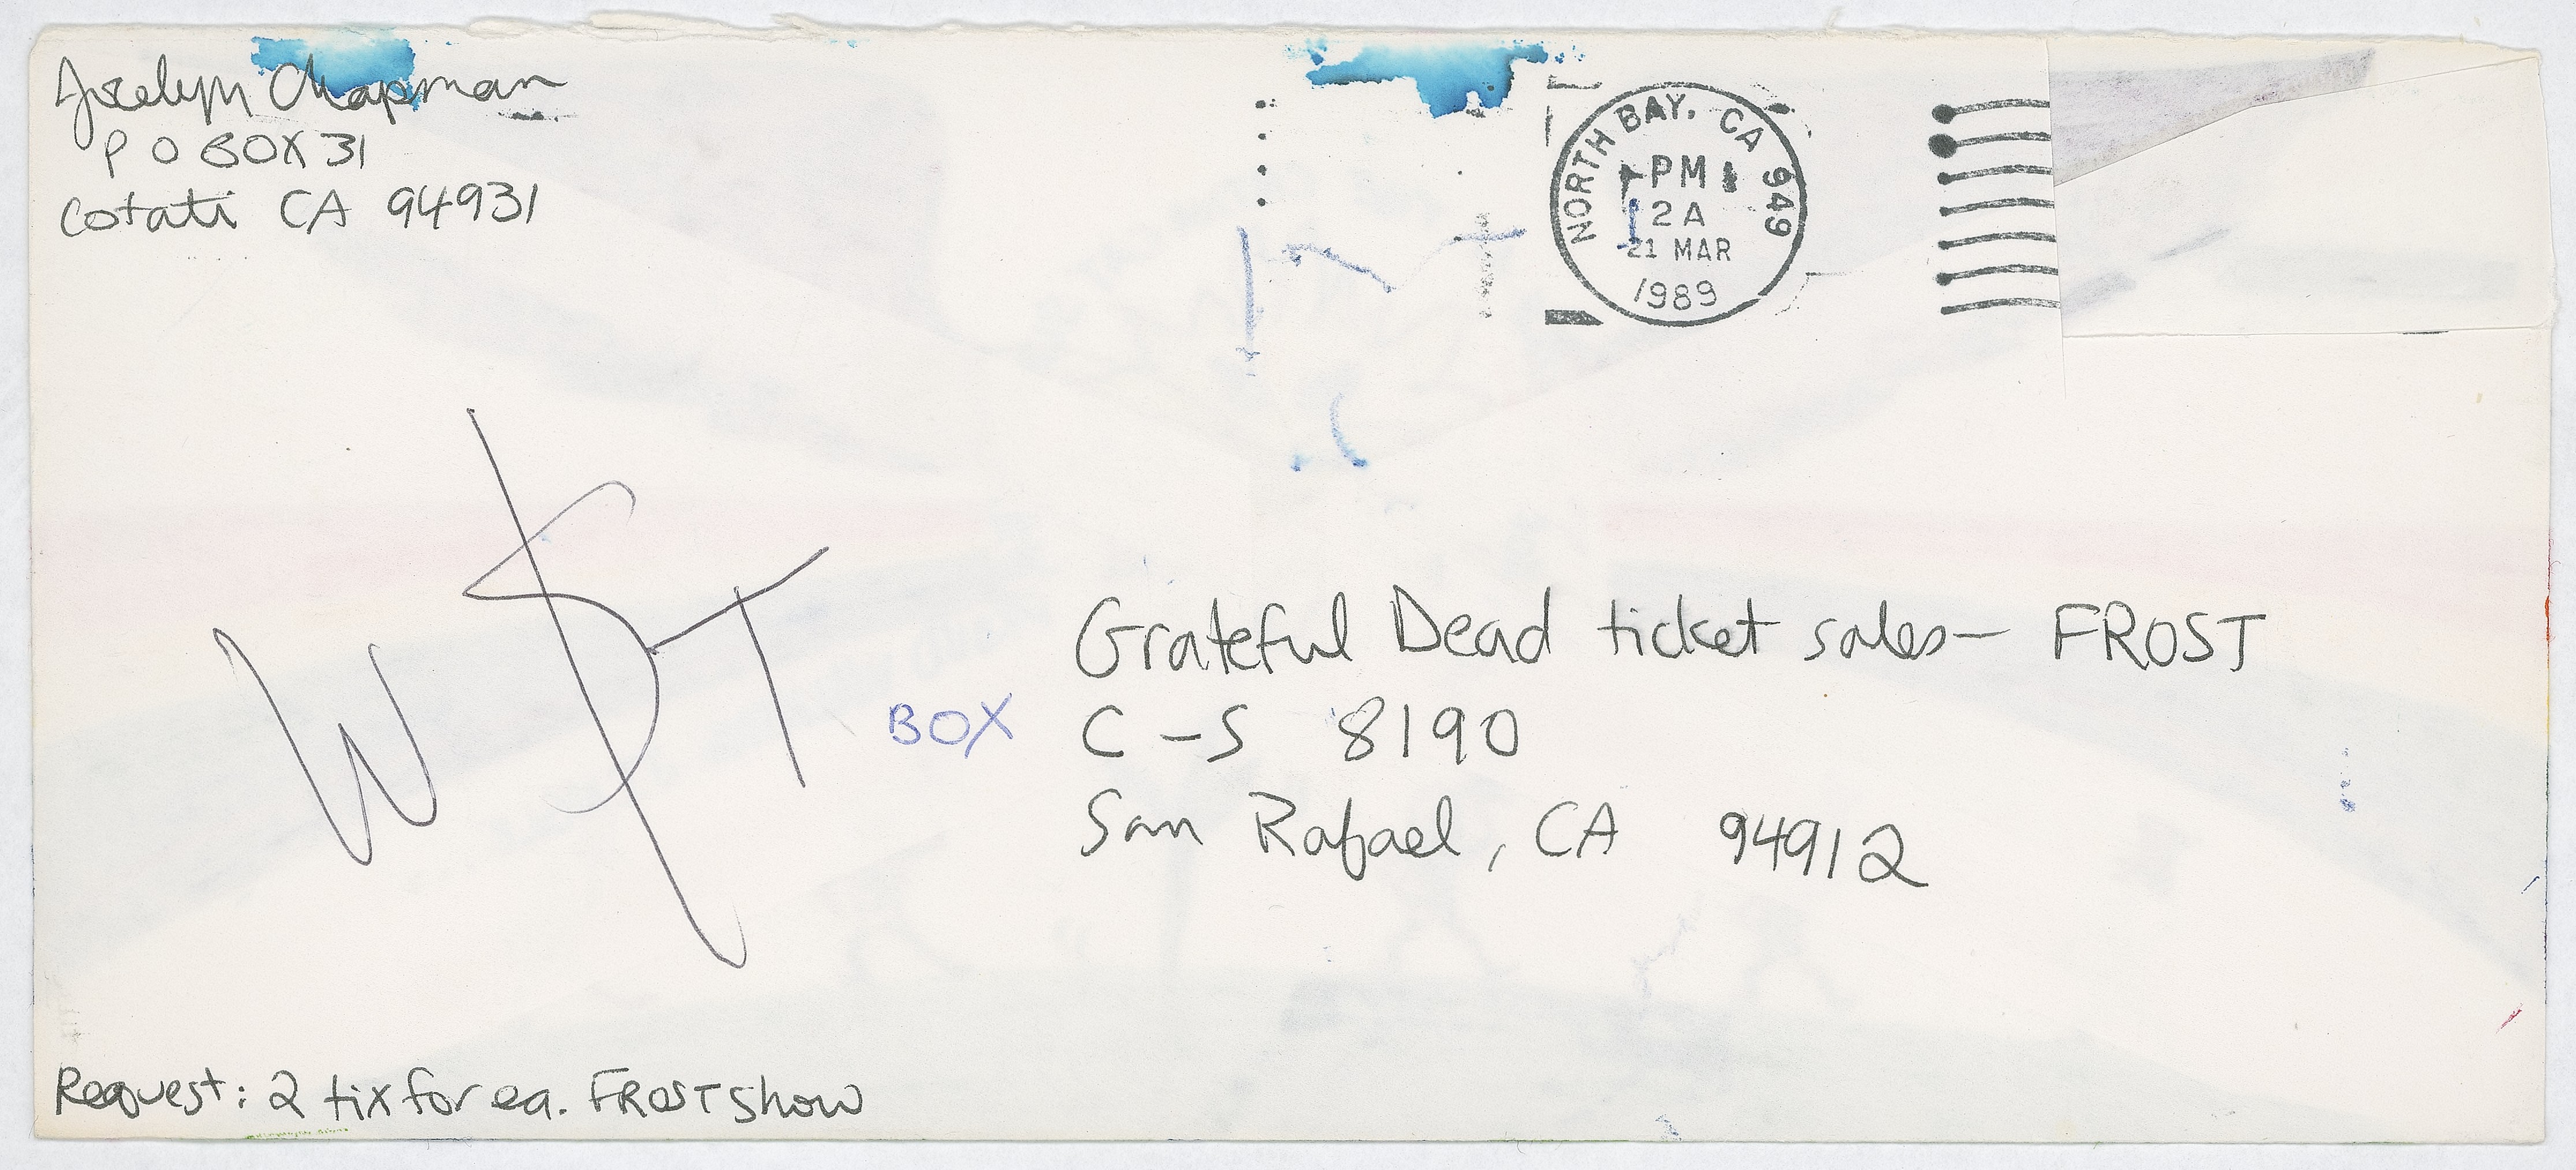 Jocelyn Chapman
P O BOX 31
Cotati CA 94931
NORTH BAY, CA 949
PM
2A
21 MAR
1989
W $ T
Grateful Dead ticket sales— FROST
BOX C-S 8190
San Rafael, CA 94912
Request: 2 tix for ea. FROST show